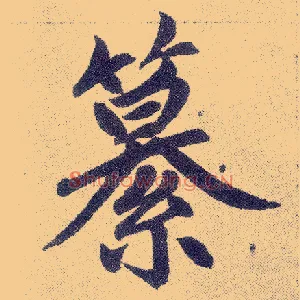 纂
Shufawang.CN